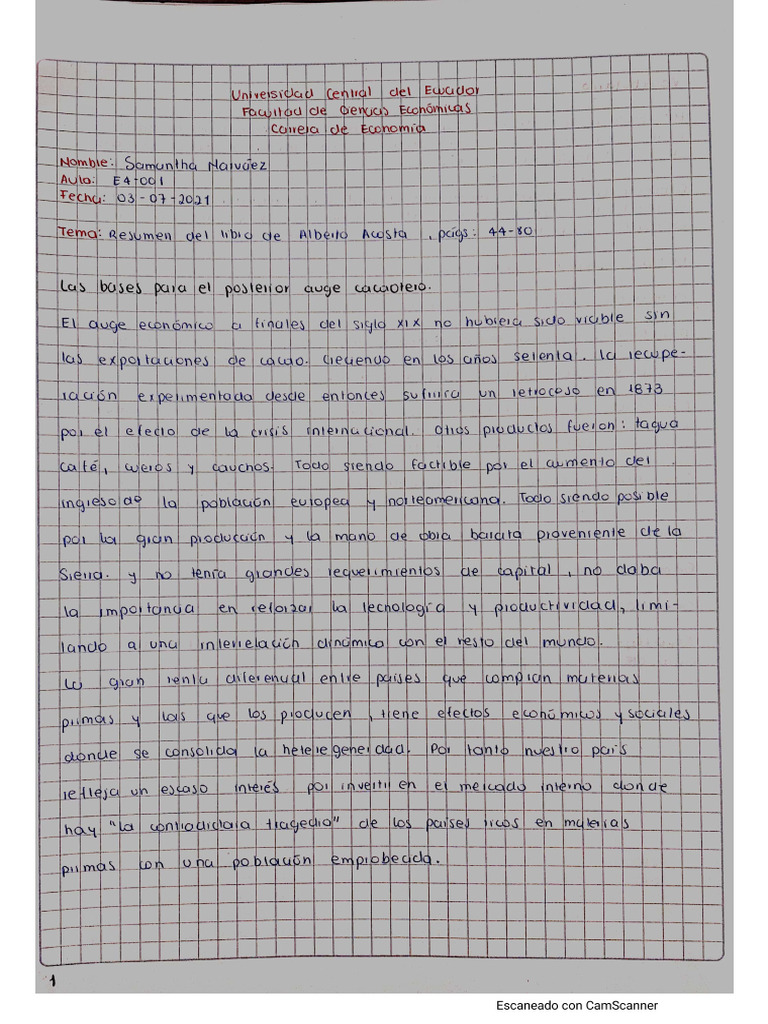 Universidad Central del Ecuador
Facultad de Ciencias Económicas
Carrera de Economía
Nombre: Samantha Narváez
Aula: E4-001
Fecha: 03-07-2021
Tema: Resumen del libro de Alberto Acosta, págs: 44-80
Las bases para el posterior auge cacaotero.
El auge económico a finales del siglo XIX no hubiera sido viable sin
las exportaciones de cacao. Creciendo en los años setenta. La recupe-
ración experimentada desde entonces sufriría un retroceso en 1873
por el efecto de la crisis internacional. Otros productos fueron: tagua
café, cueros y cauchos. Todo siendo factible por el aumento del
ingreso de la población europea y norteamericana. Todo siendo posible
por la gran producción y la mano de obra barata proveniente de la
Sierra. y no tenía grandes requerimientos de capital, no daba
la importancia en reforzar la tecnología y productividad, limi-
tando a una interrelación dinámico con el resto del mundo.
La gran renta diferencial entre países que compran materias
primas y las que los producen, tiene efectos económicos y sociales
donde se consolida la heteregeneidad. Por tanto nuestro país
refleja un escaso interés por invertir en el mercado interno donde
hay "la contradictoria tragedia" de los países ricos en materias
primas con una población emprobecida.
1
Escaneado con CamScanner